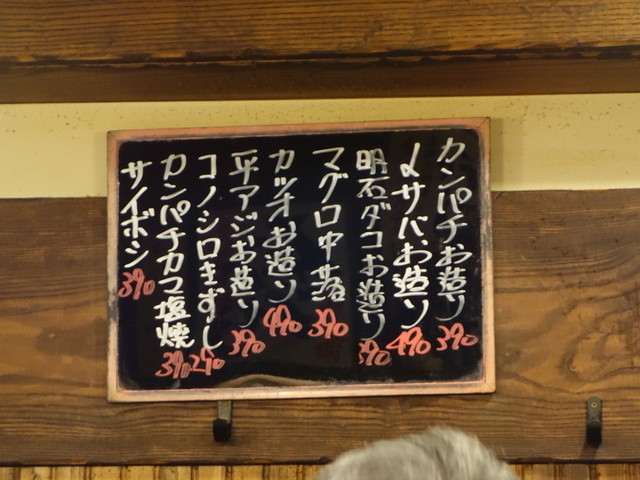 カンパチお造り 390
〆サバお造り 490
明石ダコお造り 390
マグロ中落 390
カツオお造り 490
平アジお造り 390
コノシロきずし 290
カンパチカマ塩焼 390
サイボシ 390